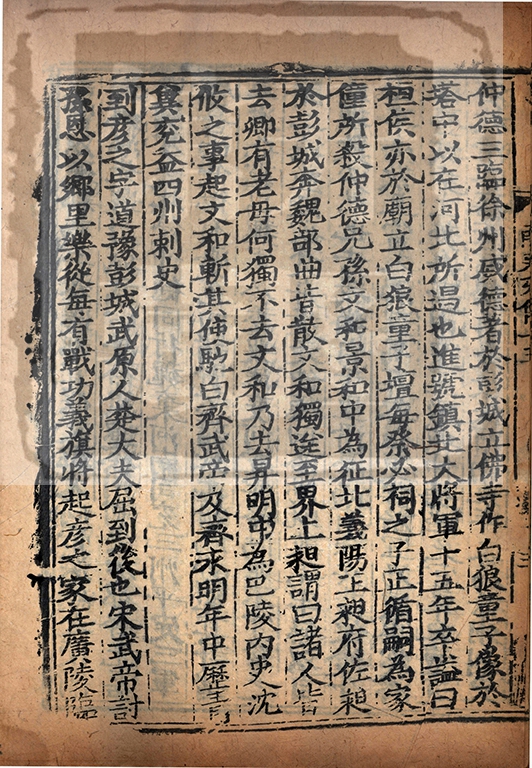 仲德三臨徐州威德著於彭城立佛寺作白狼童子像於
塔中以在河北所遇也進號鎮北大將軍十五年卒諡曰
桓侯亦於廟立白狼童子壇每祭必祠之子正循嗣為家
僮所殺仲德兄孫文和景和中為征北義陽王昶府佐昶
於彭城奔魏部曲皆散文和獨送至界上昶謂曰諸人皆
去卿有老母何獨不去文和乃去昇明中為巴陵內史沈
攸之事起文和斬其使馳白齊武帝及齊永明年中歷青
冀兗益四州刺史
到彥之字道豫彭城武原人楚大夫屈到後也宋武帝討
孫恩以鄉里樂從每有戰功義旗將起彥之家在廣陵臨